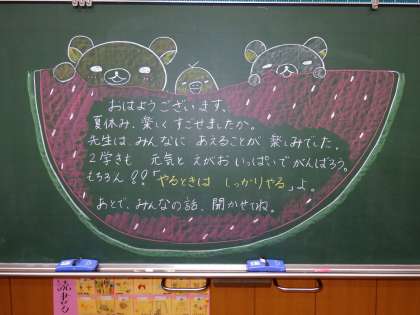 おはようございます。
夏休み、楽しくすごせましたか。
先生は、みんなに あえることが 楽しみでした。
2学きも 元気と えがおいっぱいで がんばろう。
もちろん!!「やるときは しっかりやる」よ。
あとで、みんなの話、聞かせてね。
読書